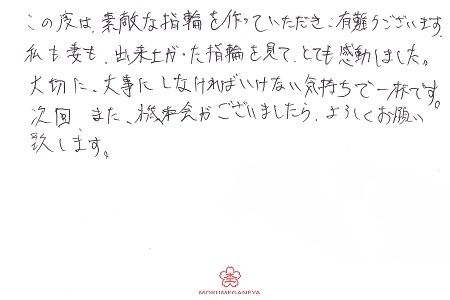 この度は、素敵な指輪を作っていただき、有難うございます。
私も妻も、出来上がった指輪を見て、とても感動しました。
大切に、大事にしなければいけない気持ちで一杯です。
次回、また、機会がございましたら、よろしくお願い
致します。
MOKUMEGANEYA